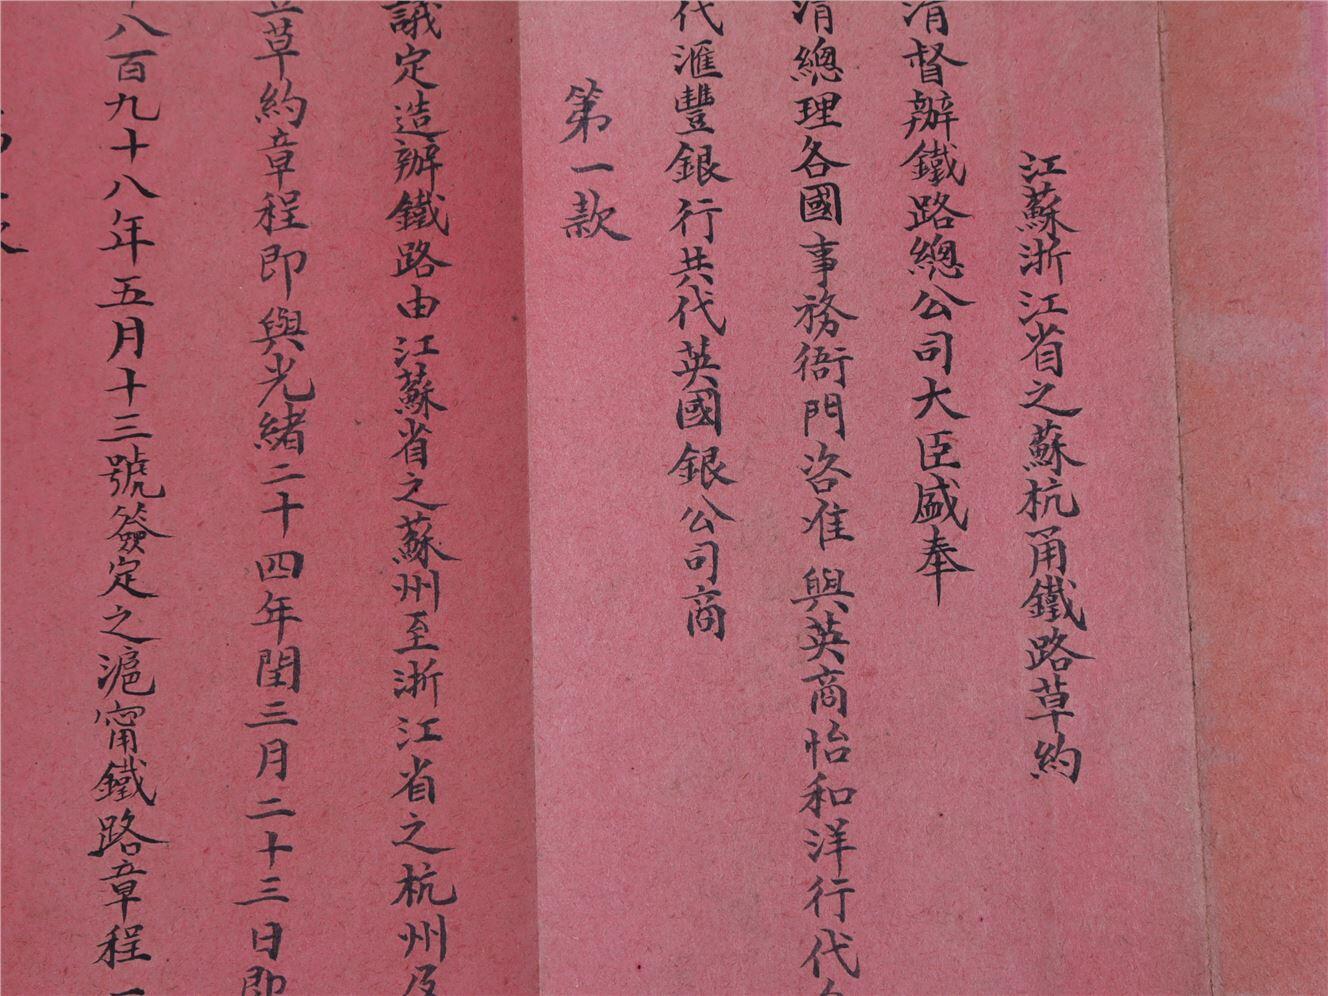 江蘇浙江省之蘇杭甬鐵路草約
清督辦鐵路總公司大臣盛奉
清總理各國事務衙門咨准與英商怡和洋行代
代滙豐銀行共代英國銀公司商
第一款
議定造辦鐵路由江蘇省之蘇州至浙江省之杭州及
立草約章程即與光緒二十四年閏三月二十三日即
八百九十八年五月十三號簽定之滬甯鐵路章程一